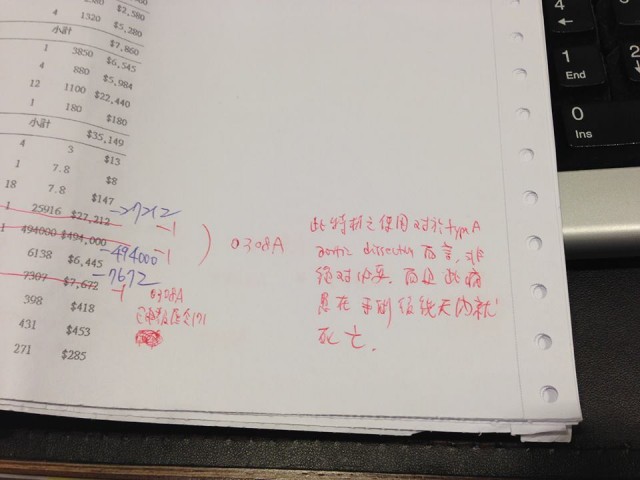 $2,580
4 1320 $5,280
小計 $7,860
1 3850 $6,545
4 880 $5,984
12 1100 $22,440
1 180 $180
小計 $35,149
4 3 $13
1 7.8 $8
18 7.8 $147
1 25916 $27,212
-1
1 494000 $494,000
-494000 -1
) 0308A
6138 $6,445
7307 $7,672
-7672
-1
0308A
398 $418
431 $453
271 $285
此特材之使用對於type A
aortic dissection而言,非
絕對必要.而且此病
患在
天內就
死亡.
4
←
1
End
2
0
Ins